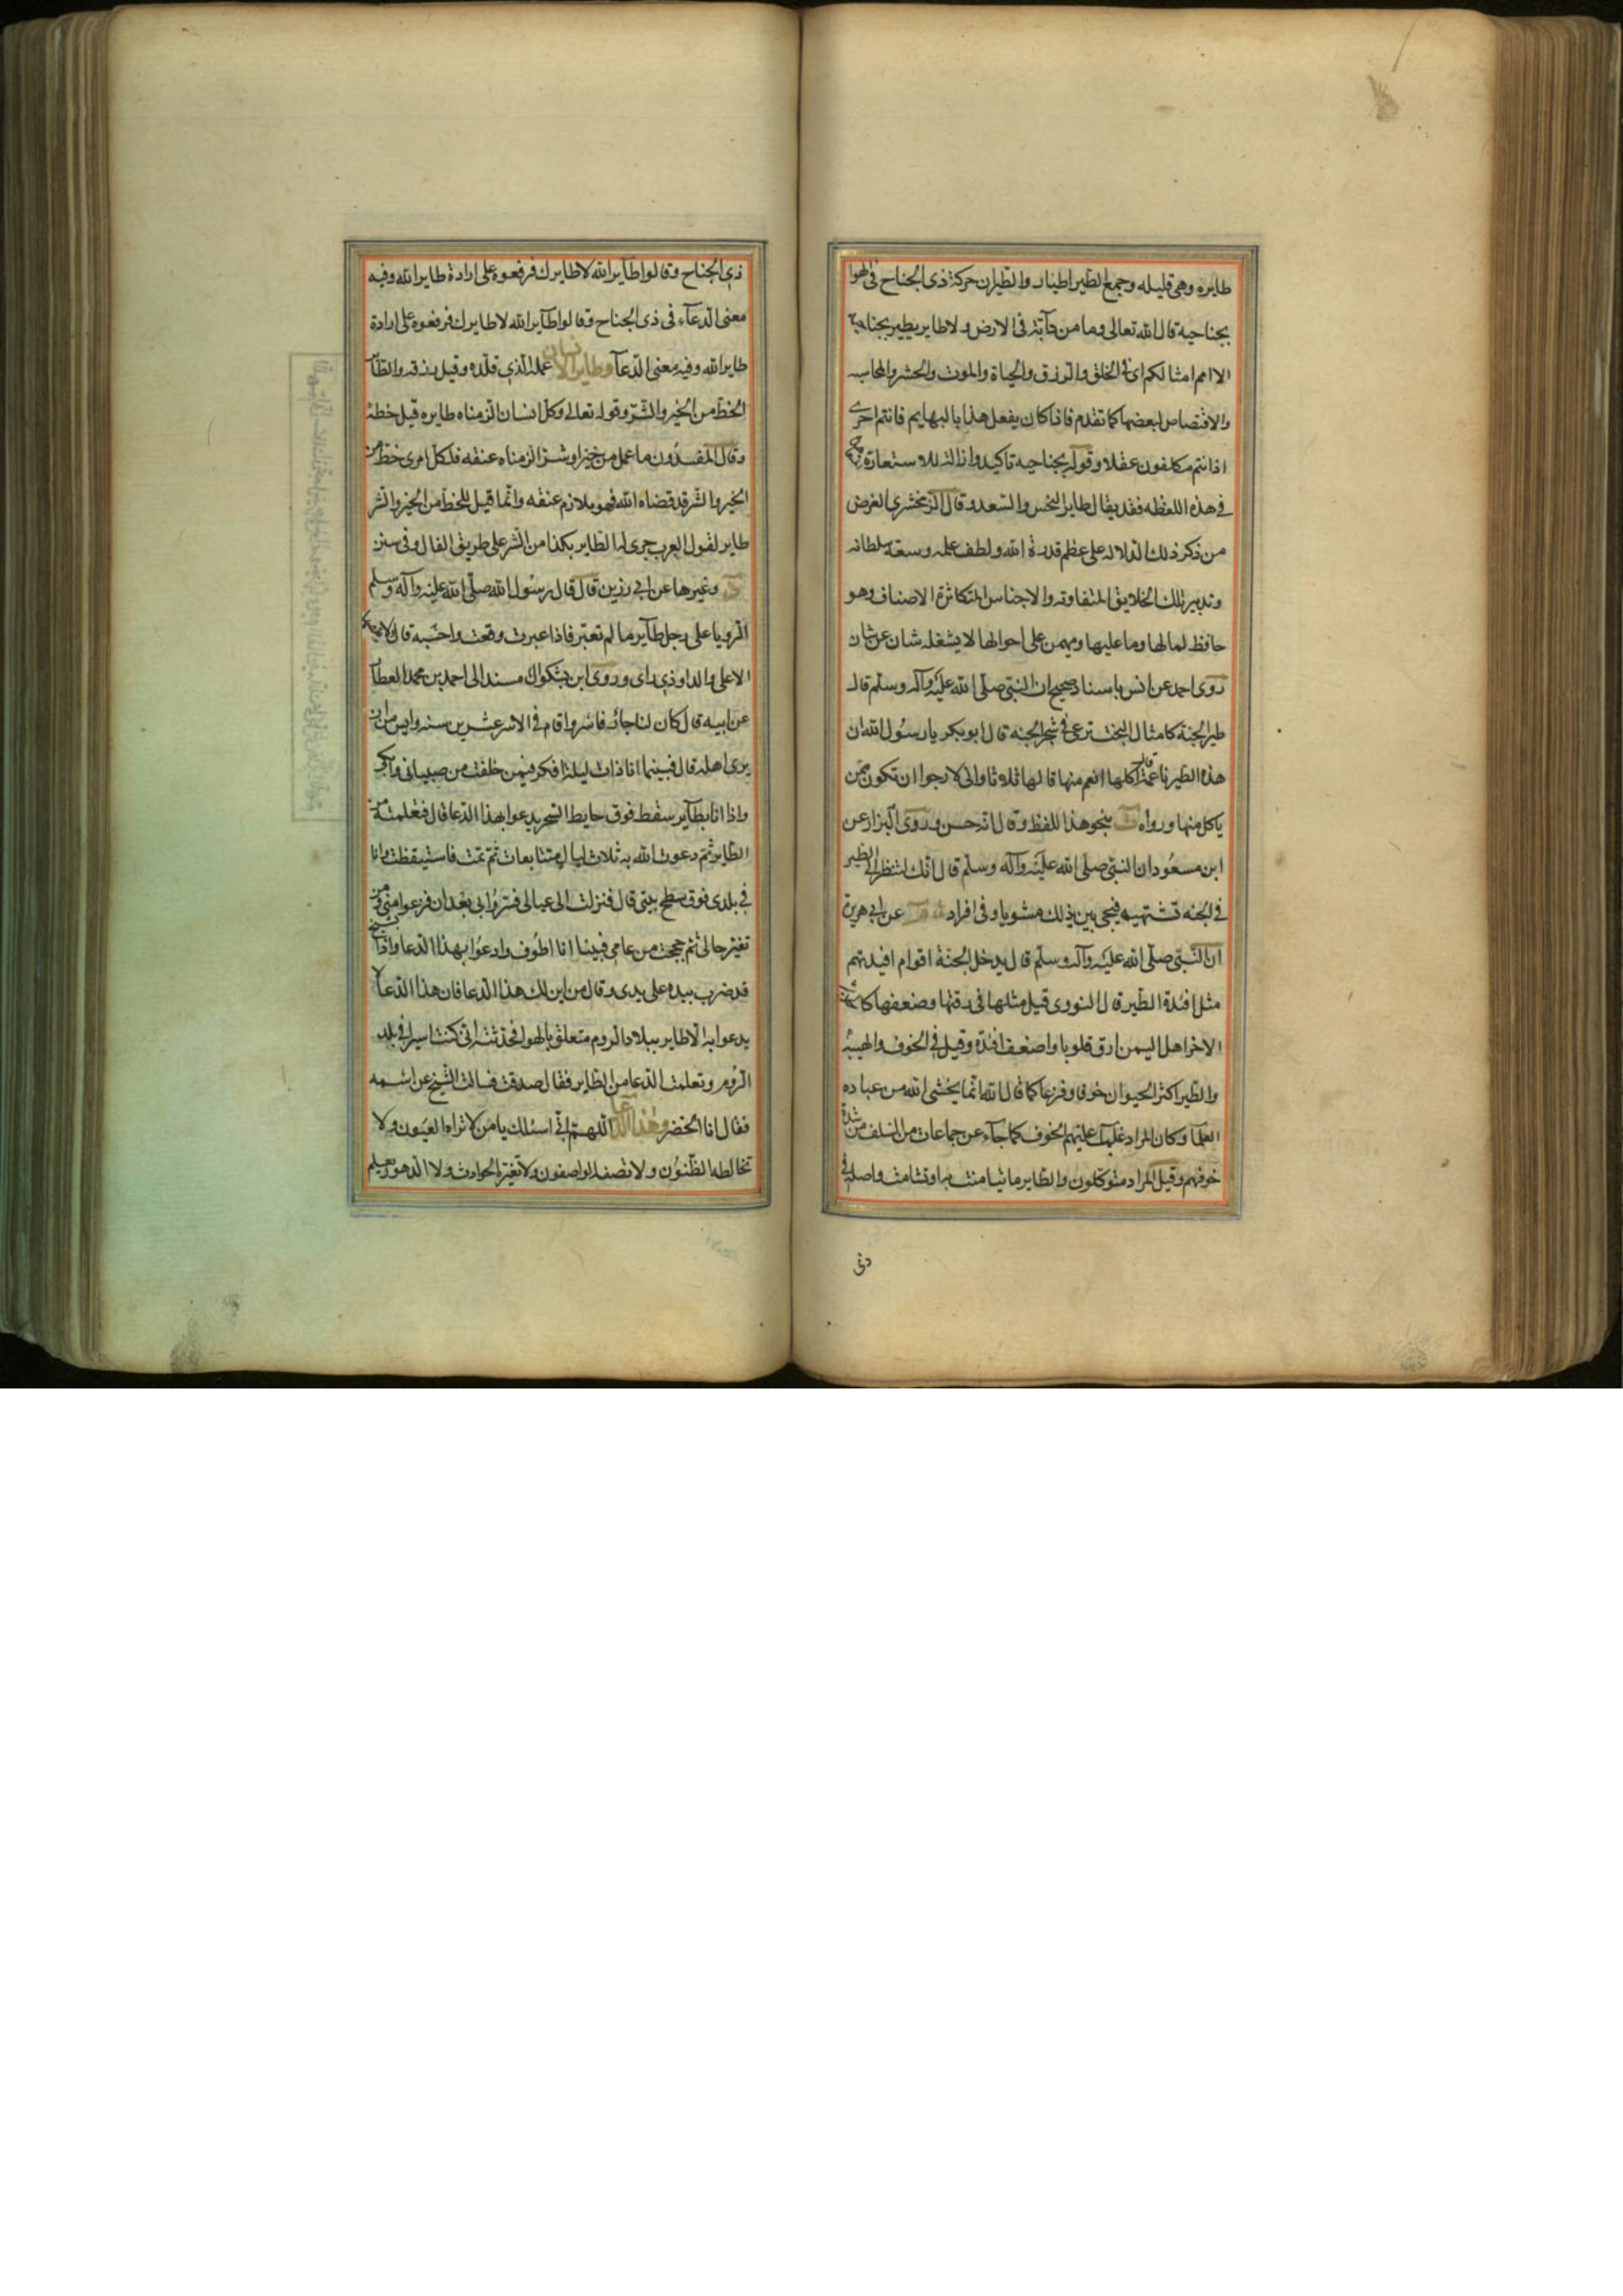 طايره وهى قليله وجمع الطير اطيار والطيران حركة ذى الجناح فى الهوا
بجناحيه قال الله تعالى وما من دآبة فى الارض ولا طاير يطير بجناحيه
الا امم امثالكم اى فى الخلق والرزق والحياة والموت والحشر والمحاسبه
والاقتصاص لبعضها كما تقدم فاذا كان يفعل هذا بالبهايم فانتم احرى
اذ انتم مكلفون عقلا وقوله بجناحيه تاكيد وازالة للاستعارة
فى هذه اللفظه فقد يقال طاير النحس والسعد وقال الزمخشرى الغرض
من ذكر ذلك الدلاله على عظم قدرة الله ولطف علمه وسعة سلطانه
وتدبير تلك الخلايق المتفاوته والاجناس المتكاثرة الاصناف وهو
حافظ لمالها وما عليها ومهيمن على احوالها لا يشغله شان عن شان
روى احمد عن انس باسناد صحيح ان النبى صلى الله عليه وآله وسلم قال
طير الجنة كامثال البخت ترعى فى شجر الجنه قال ابو بكر يا رسول الله ان
هذه الطير ناعمة قال اكلها انعم منها قالها ثلاثا وانى لارجوا ان تكون ممن
ياكل منها ورواه ت بنحو هذا اللفظ وقال انه حسن وروى البزار عن
ابن مسعود ان النبى صلى الله عليه وآله وسلم قال انك لتنظر الى الطير
فى الجنه تشتهيه فيجى بين يديك مشويا وفى افراد عن ابى هريرة
ان النبى صلى الله عليه وآله وسلم قال يدخل الجنة اقوام افيدتهم
مثل افئدة الطير قال النووى قيل مثلها فى رقتها وضعفها كالحديث
الاخر اهل اليمن ارق قلوبا واضعف افئدة وقيل فى الخوف والهيبه
والطير اكثر الحيوان خوفا وفزعا كما قال الله انما يخشى الله من عباده
العلمآ وكان المراد غلب عليهم الخوف كما جآء عن جماعات من السلف من شدة
خوفهم وقيل المراد متوكلون والطاير ما تيامنت به او تشامت واصله فى
ذى
ذى الجناح وقالوا طآير الله لا طايرك فرفعوه على ارادة طاير الله وفيه
معنى الدعآء فى ذى الجناح وقالوا طآير الله لا طايرك فرفعوه على ارادة
طاير الله وفيه معنى الدعآ وطاير الانسان عمله الذى قلده وقيل رزقه والطآير
الحظ من الخير والشر وقوله تعالى وكل انسان الزمناه طايره قيل حظه
وقال المفسرون ما عمل من خير او شر الزمناه عنقه فلكل امرى حظ من
الخير والشر قد قضاه الله فهو ملازم عنقه وانما قيل للحظ من الخير والشر
طاير لقول العرب جرى له الطاير بكذا من الشر على طريق الفال وفى سنن
د وغيرها عن ابى رزين قال قال رسول الله صلى الله عليه وآله وسلم
الرويا على رجل طآير ما لم تعبر فاذا عبرت وقعت واحسبه قال لا تقصها
الا على واد او ذى راى وروى ابن بشكوال مسندا الى احمد بن محمد العطار
عن ابيه قال كان لنا جار فاسر واقام فى الاسر عشرين سنه وايس من ان
يرى اهله قال فبينما انا ذات ليلة افكر فيمن خلفت من صبيانى وابكى
واذا انا بطآير سقط فوق حايط السجن يدعوا بهذا الدعا قال فتعلمته من
الطاير ثم دعوت الله به ثلاث ليال متتابعات ثم نمت فاستيقظت وانا
فى بلدى فوق سطح بيتى قال فنزلت الى عيالى فسروا بى بعد ان فزعوا منى من
تغير حالى ثم حججت من عامى فبينا انا اطوف وادعوا بهذا الدعا واذا شيخ
قد ضرب بيده على يدى وقال من اين لك هذا الدعا فان هذا الدعا لا
يدعوا به الا طاير ببلاد الروم متعلق بالهوا فحدثته انى كنت اسيرا فى بلد
الروم وتعلمت الدعا من الطاير فقال صدقت فسالت الشيخ عن اسمه
فقال انا الخضر وهذا الدعا اللهم انى اسئلك يا من لا تراه العيون ولا
تخالطه الظنون ولا تصفه الواصفون ولا تغيره الحوادث ولا الدهور يعلم